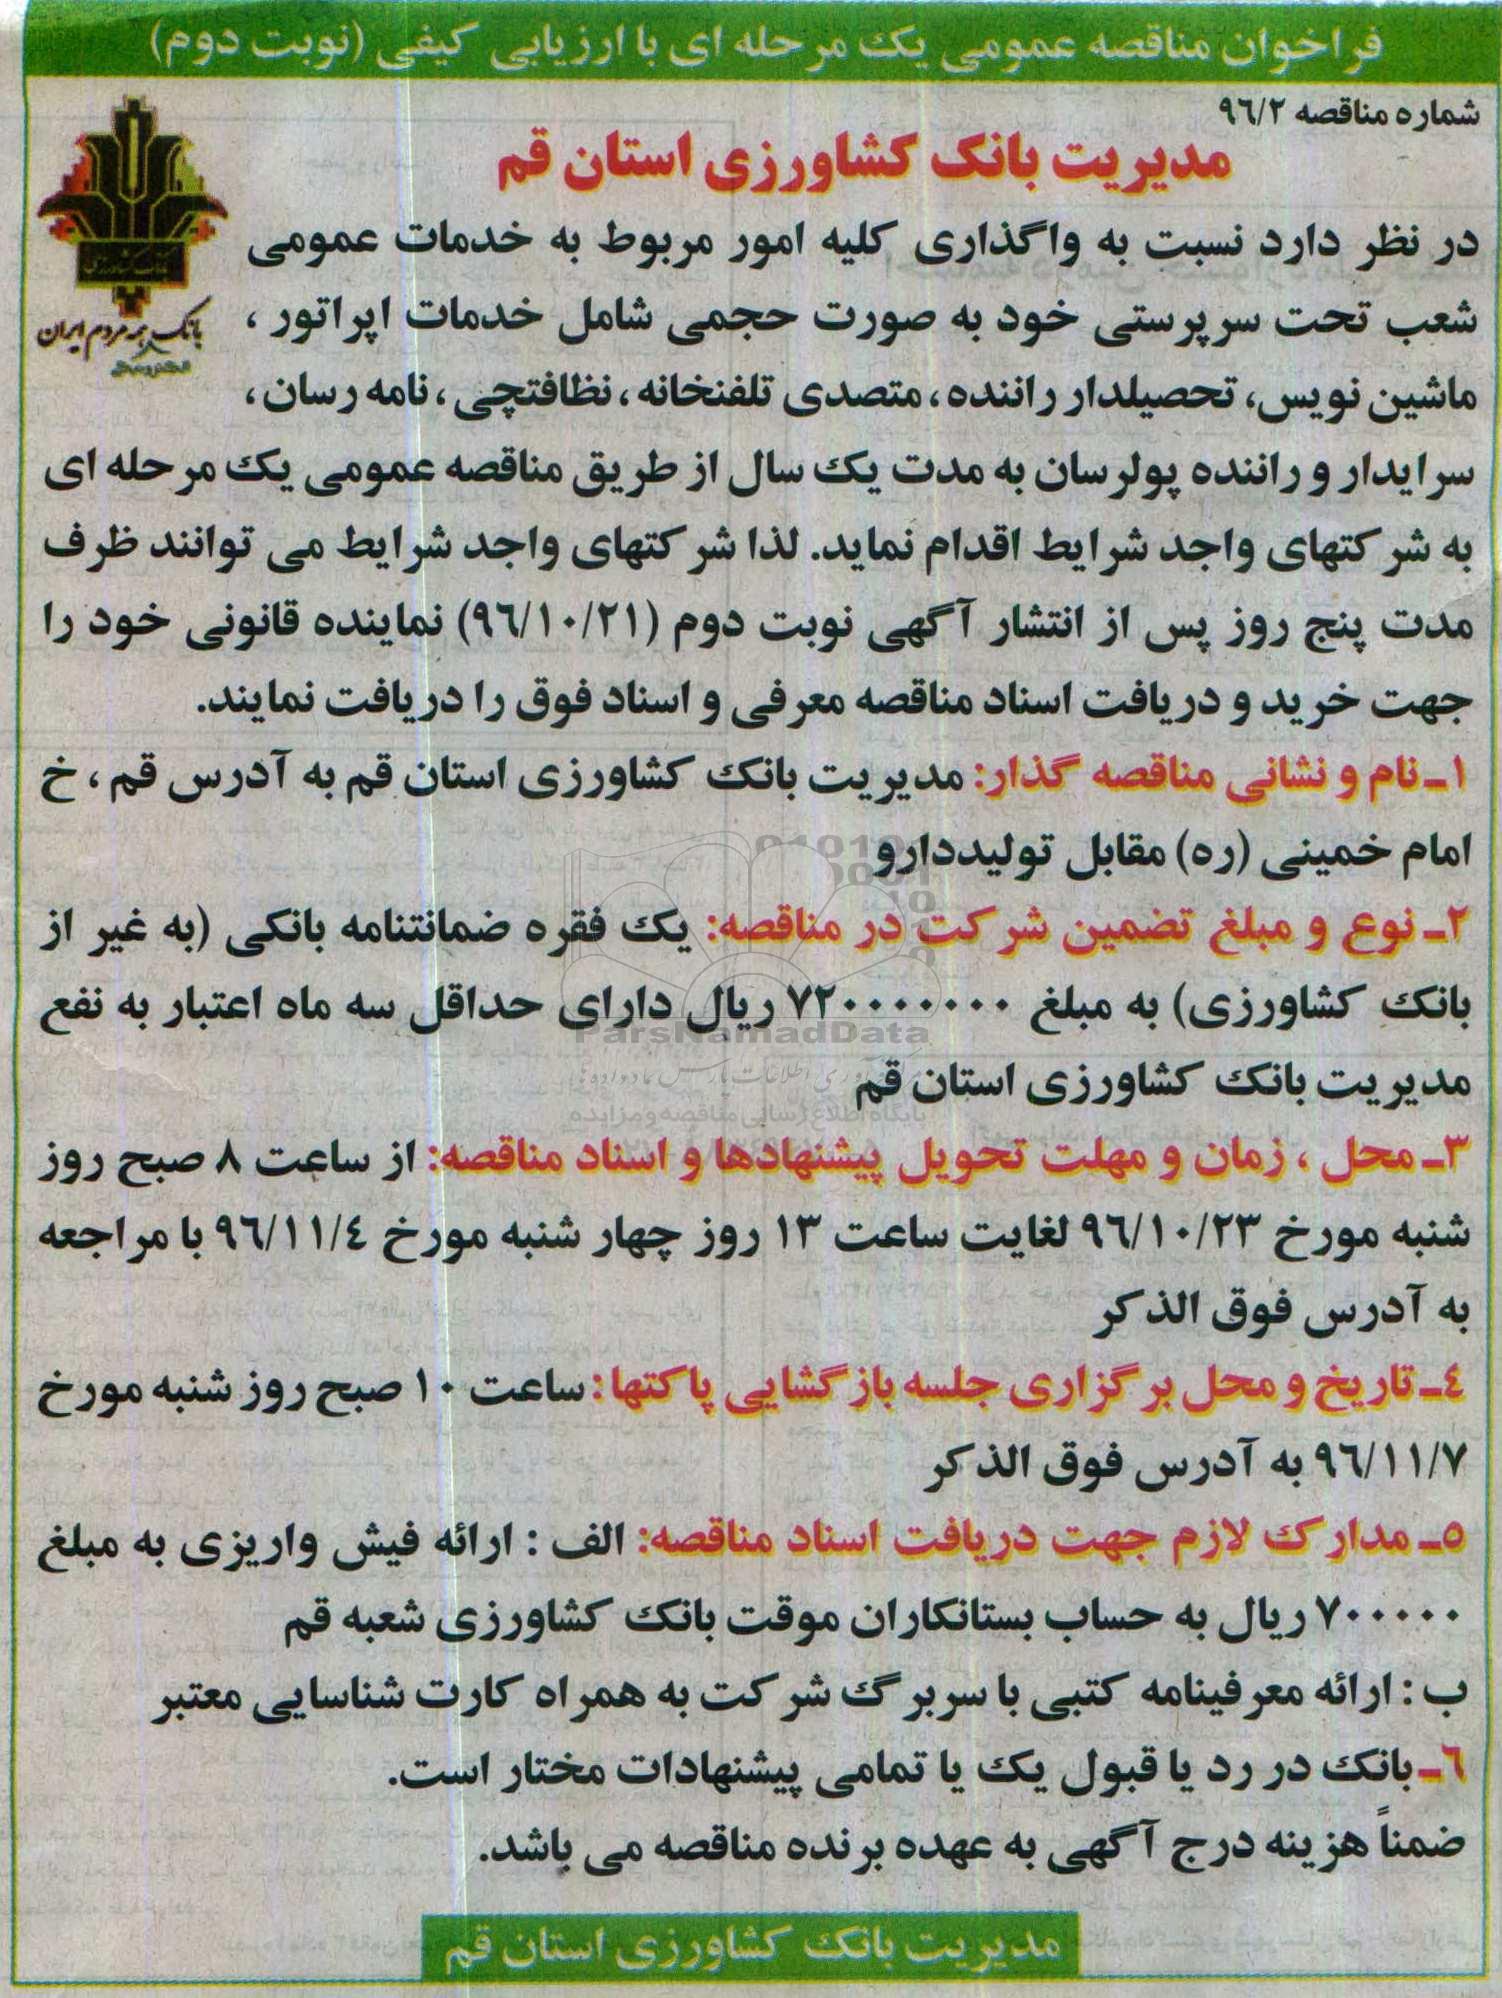 فراخوان مناقصه عمومی یک مرحله ای با ارزیابی کیفی (نوبت دوم)
شماره مناقصه ۹۶/۲
مدیریت بانک کشاورزی استان قم
بانک کشاورزی
بانک همه مردم ایران
در نظر دارد نسبت به واگذاری کلیه امور مربوط به خدمات عمومی
شعب تحت سرپرستی خود به صورت حجمی شامل خدمات اپراتور ،
ماشین نویس، تحصیلدار راننده ، متصدی تلفنخانه ، نظافتچی ، نامه رسان ،
سرایدار و راننده پولرسان به مدت یک سال از طریق مناقصه عمومی یک مرحله ای
به شرکتهای واجد شرایط اقدام نماید. لذا شرکتهای واجد شرایط می توانند ظرف
مدت پنج روز پس از انتشار آگهی نوبت دوم (۹۶/۱۰/۲۱) نماینده قانونی خود را
جهت خرید و دریافت اسناد مناقصه معرفی و اسناد فوق را دریافت نمایند.
۱ـ نام و نشانی مناقصه گذار: مدیریت بانک کشاورزی استان قم به آدرس قم ، خ
امام خمینی (ره) مقابل تولیددارو
۲ـ نوع و مبلغ تضمین شرکت در مناقصه: یک فقره ضمانتنامه بانکی (به غیر از
بانک کشاورزی) به مبلغ ۷۲۰۰۰۰۰۰۰ ریال دارای حداقل سه ماه اعتبار به نفع
ParsNamadData
مدیریت بانک کشاورزی استان قم
پایگاه اطلاع رسانی مناقصه و مزایده
۳ـ محل ، زمان و مهلت تحویل پیشنهادها و اسناد مناقصه: از ساعت ۸ صبح روز
شنبه مورخ ۹۶/۱۰/۲۳ لغایت ساعت ۱۳ روز چهار شنبه مورخ ۹۶/۱۱/۴ با مراجعه
به آدرس فوق الذکر
۴ـ تاریخ و محل برگزاری جلسه بازگشایی پاکتها : ساعت ۱۰ صبح روز شنبه مورخ
۹۶/۱۱/۷ به آدرس فوق الذکر
۵ـ مدارک لازم جهت دریافت اسناد مناقصه: الف : ارائه فیش واریزی به مبلغ
۷۰۰۰۰۰ ریال به حساب بستانکاران موقت بانک کشاورزی شعبه قم
ب : ارائه معرفینامه کتبی با سربرگ شرکت به همراه کارت شناسایی معتبر
۶ـ بانک در رد یا قبول یک یا تمامی پیشنهادات مختار است.
ضمناً هزینه درج آگهی به عهده برنده مناقصه می باشد.
مدیریت بانک کشاورزی استان قم